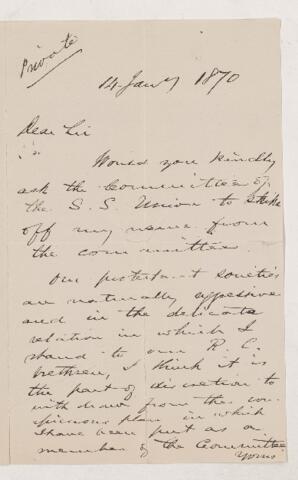 Private
14 Jany 1870
Dear Sir
Would you kindly
ask the Committee of
the S. S. Union to strike
off my name from
the committee.
Our protestant societies
are naturally aggressive
and in the delicate
relation in which I
stand to our R. C.
brethren, I think it is
the part of discretion to
withdraw from the con-
spicuous place in which
I have been put as a
member of the Committee
Yours